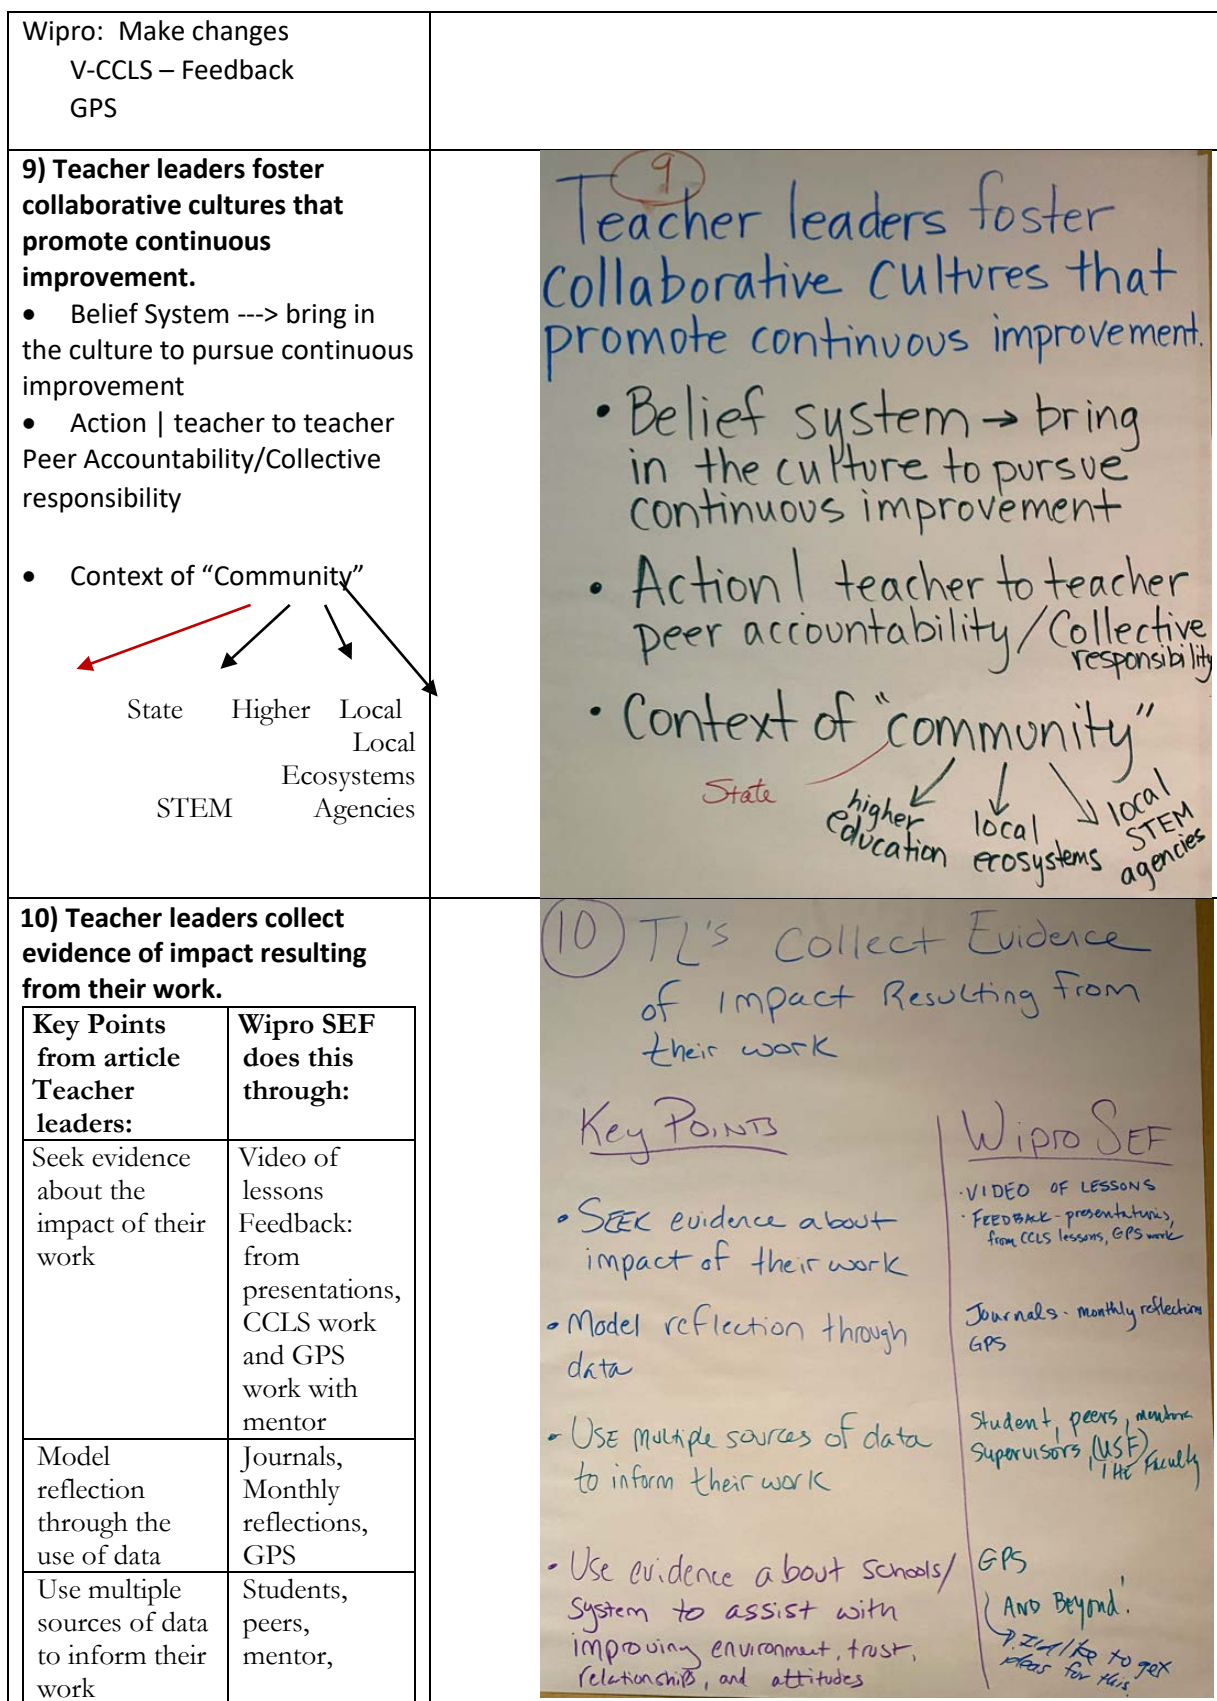 Wipro: Make changes
V-CCLS – Feedback
GPS
9) Teacher leaders foster
collaborative cultures that
promote continuous
improvement.
• Belief System ---> bring in
the culture to pursue continuous
improvement
• Action | teacher to teacher
Peer Accountability/Collective
responsibility
• Context of “Community”
State Higher Local
Local
Ecosystems
STEM Agencies
9
Teacher leaders foster
collaborative cultures that
promote continuous improvement.
• Belief system → bring
in the culture to pursue
continuous improvement
• Action | teacher to teacher
peer accountability/Collective
responsibility
• Context of "community"
State
higher
education
local
ecosystems
local
STEM
agencies
10) Teacher leaders collect
evidence of impact resulting
from their work.
Key Points
from article
Teacher
leaders:
Wipro SEF
does this
through:
Seek evidence
about the
impact of their
work
Video of
lessons
Feedback:
from
presentations,
CCLS work
and GPS
work with
mentor
Model
reflection
through the
use of data
Journals,
Monthly
reflections,
GPS
Use multiple
sources of data
to inform their
work
Students,
peers,
mentor,
10 TL's Collect Evidence
of Impact Resulting from
their work
Key Points
• SEEK evidence about
impact of their work
• Model reflection through
data
• USE multiple sources of data
to inform their work
• Use evidence about schools/
system to assist with
improving environment, trust,
relationships, and attitudes
Wipro SEF
• VIDEO OF LESSONS
• FEEDBACK - presentations,
from CCLS lessons, GPS work
Journals - monthly reflections
GPS
Student, peers, mentors
Supervisors, (USF)
IHE Faculty
GPS
AND Beyond!
I'd like to get
ideas for this.